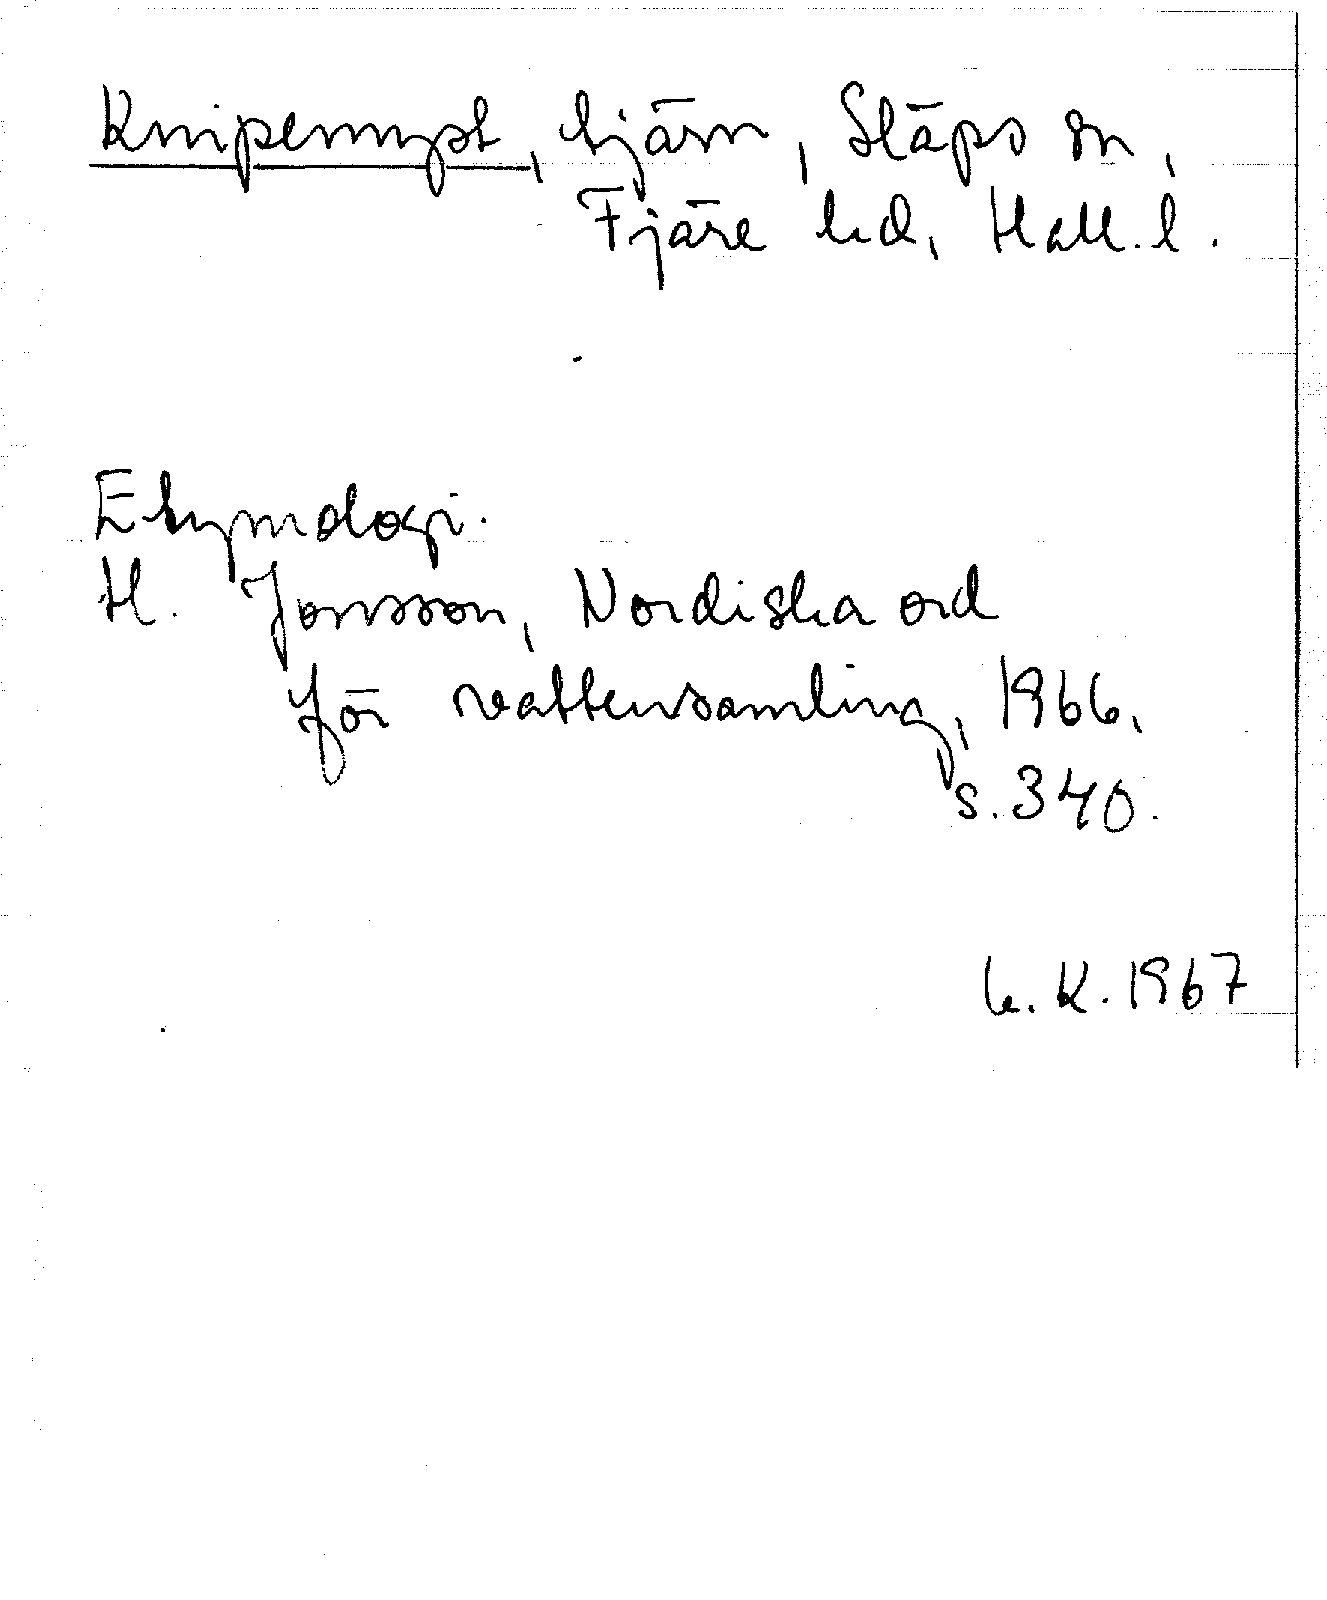 Knipemyst, tjärn, Släps sn,
Fjäre hd, Hall. l.
Etymologi.
H. Jonsson, Nordiska ord
för vattensamling, 1966,
s. 340.
K. 1967